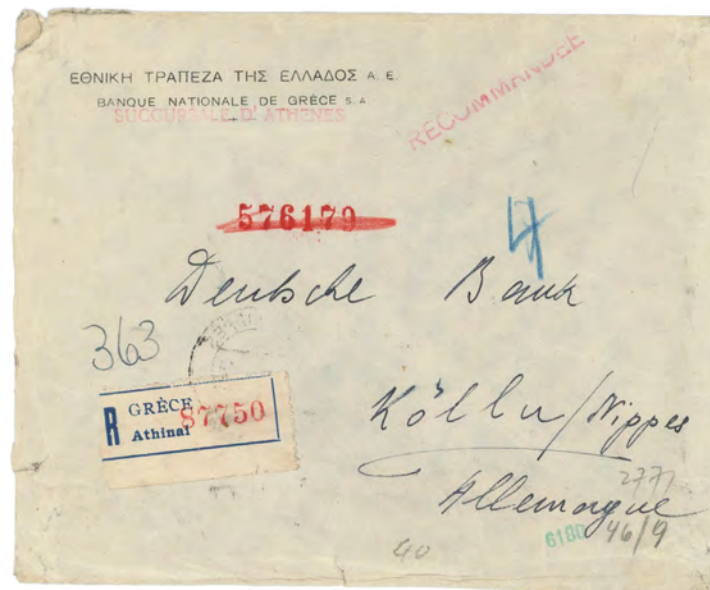 ΕΘΝΙΚΗ ΤΡΑΠΕΖΑ ΤΗΣ ΕΛΛΑΔΟΣ Α. Ε.
BANQUE NATIONALE DE GRÈCE S.A.
SUCCURSALE D' ATHENES
RECOMMANDEE
576179
4
Deutsche Bank
363
R GRÈCE 87750
Athinai
Kölln/Nippes
Allemagne
2771
6180 46/9
40